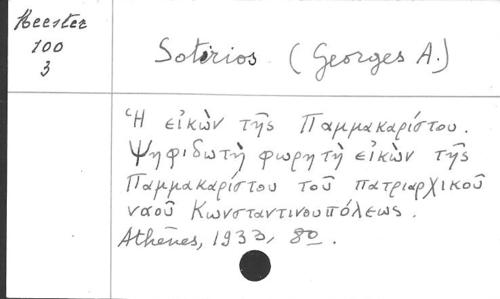 Heester
100
3
Sotirios (Georges A.)
Ἡ εἰκὼν τῆς Παμμακαρίστου.
Ψηφιδωτὴ φωρητὴ εἰκὼν τῆς
Παμμακαρίστου τοῦ πατριαρχικοῦ
ναοῦ Κωνσταντινουπόλεως.
Athènes, 1933, 8º.